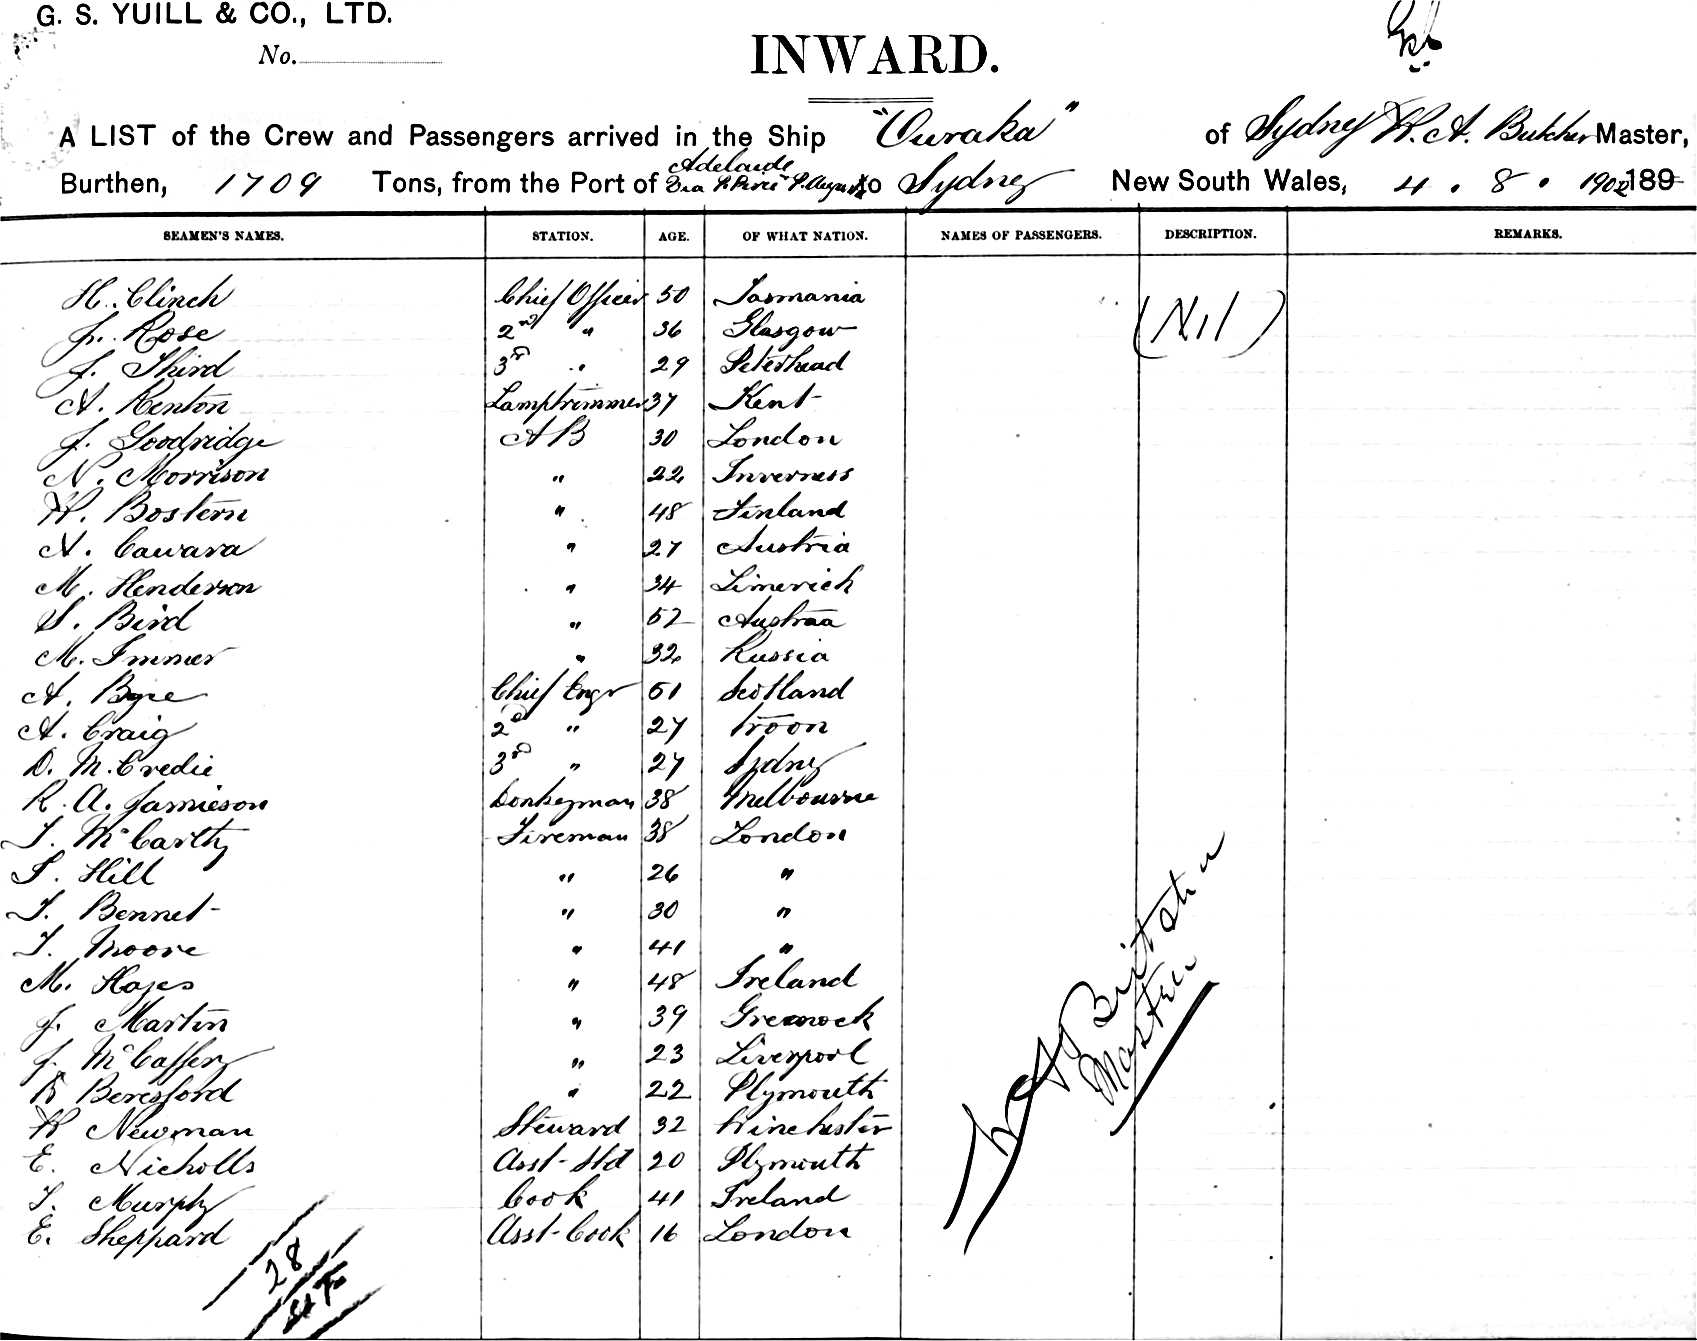 G. S. YUILL & CO., LTD.
No.
INWARD.
A LIST of the Crew and Passengers arrived in the Ship "Ouraka" of Sydney W. A. Butcher Master,
Adelaide
Burthen, 1709 Tons, from the Port of Via P. Pirie to Sydney New South Wales, 4 . 8 . 1902 189
SEAMEN'S NAMES. STATION. AGE. OF WHAT NATION. NAMES OF PASSENGERS. DESCRIPTION. REMARKS.
H. Clinch Chief Officer 50 Tasmania (Nil)
J. Rose 2nd " 36 Glasgow
J. Third 3rd " 29 Peterhead
A. Kenton Lamptrimmer 37 Kent
J. Goodridge AB 30 London
N. Morrison " 22 Inverness
W. Bostern " 48 Finland
A. Cawara " 27 Austria
M. Henderson " 34 Limerick
S. Bird " 52 Austraa
M. Immer " 32 Russia
A. Byre Chief Engr 51 Scotland
A. Craig 2d " 27 Troon
D. McCredie 3rd " 27 Sydney
R. A. Jamieson Donkeyman 38 Melbourne
T. McCarthy Fireman 38 London
T. Hill " 26 "
T. Bennet " 30 "
T. Moore " 41 "
M. Hayes " 48 Ireland
J. Martin " 39 Greenock
J. McCaffery " 23 Liverpool
B Beresford " 22 Plymouth
W Newman Steward 32 Winchester
E. Nicholls Asst Std 20 Plymouth
T. Murphy Cook 41 Ireland
E. Sheppard Asst Cook 16 London
28
W A
Master